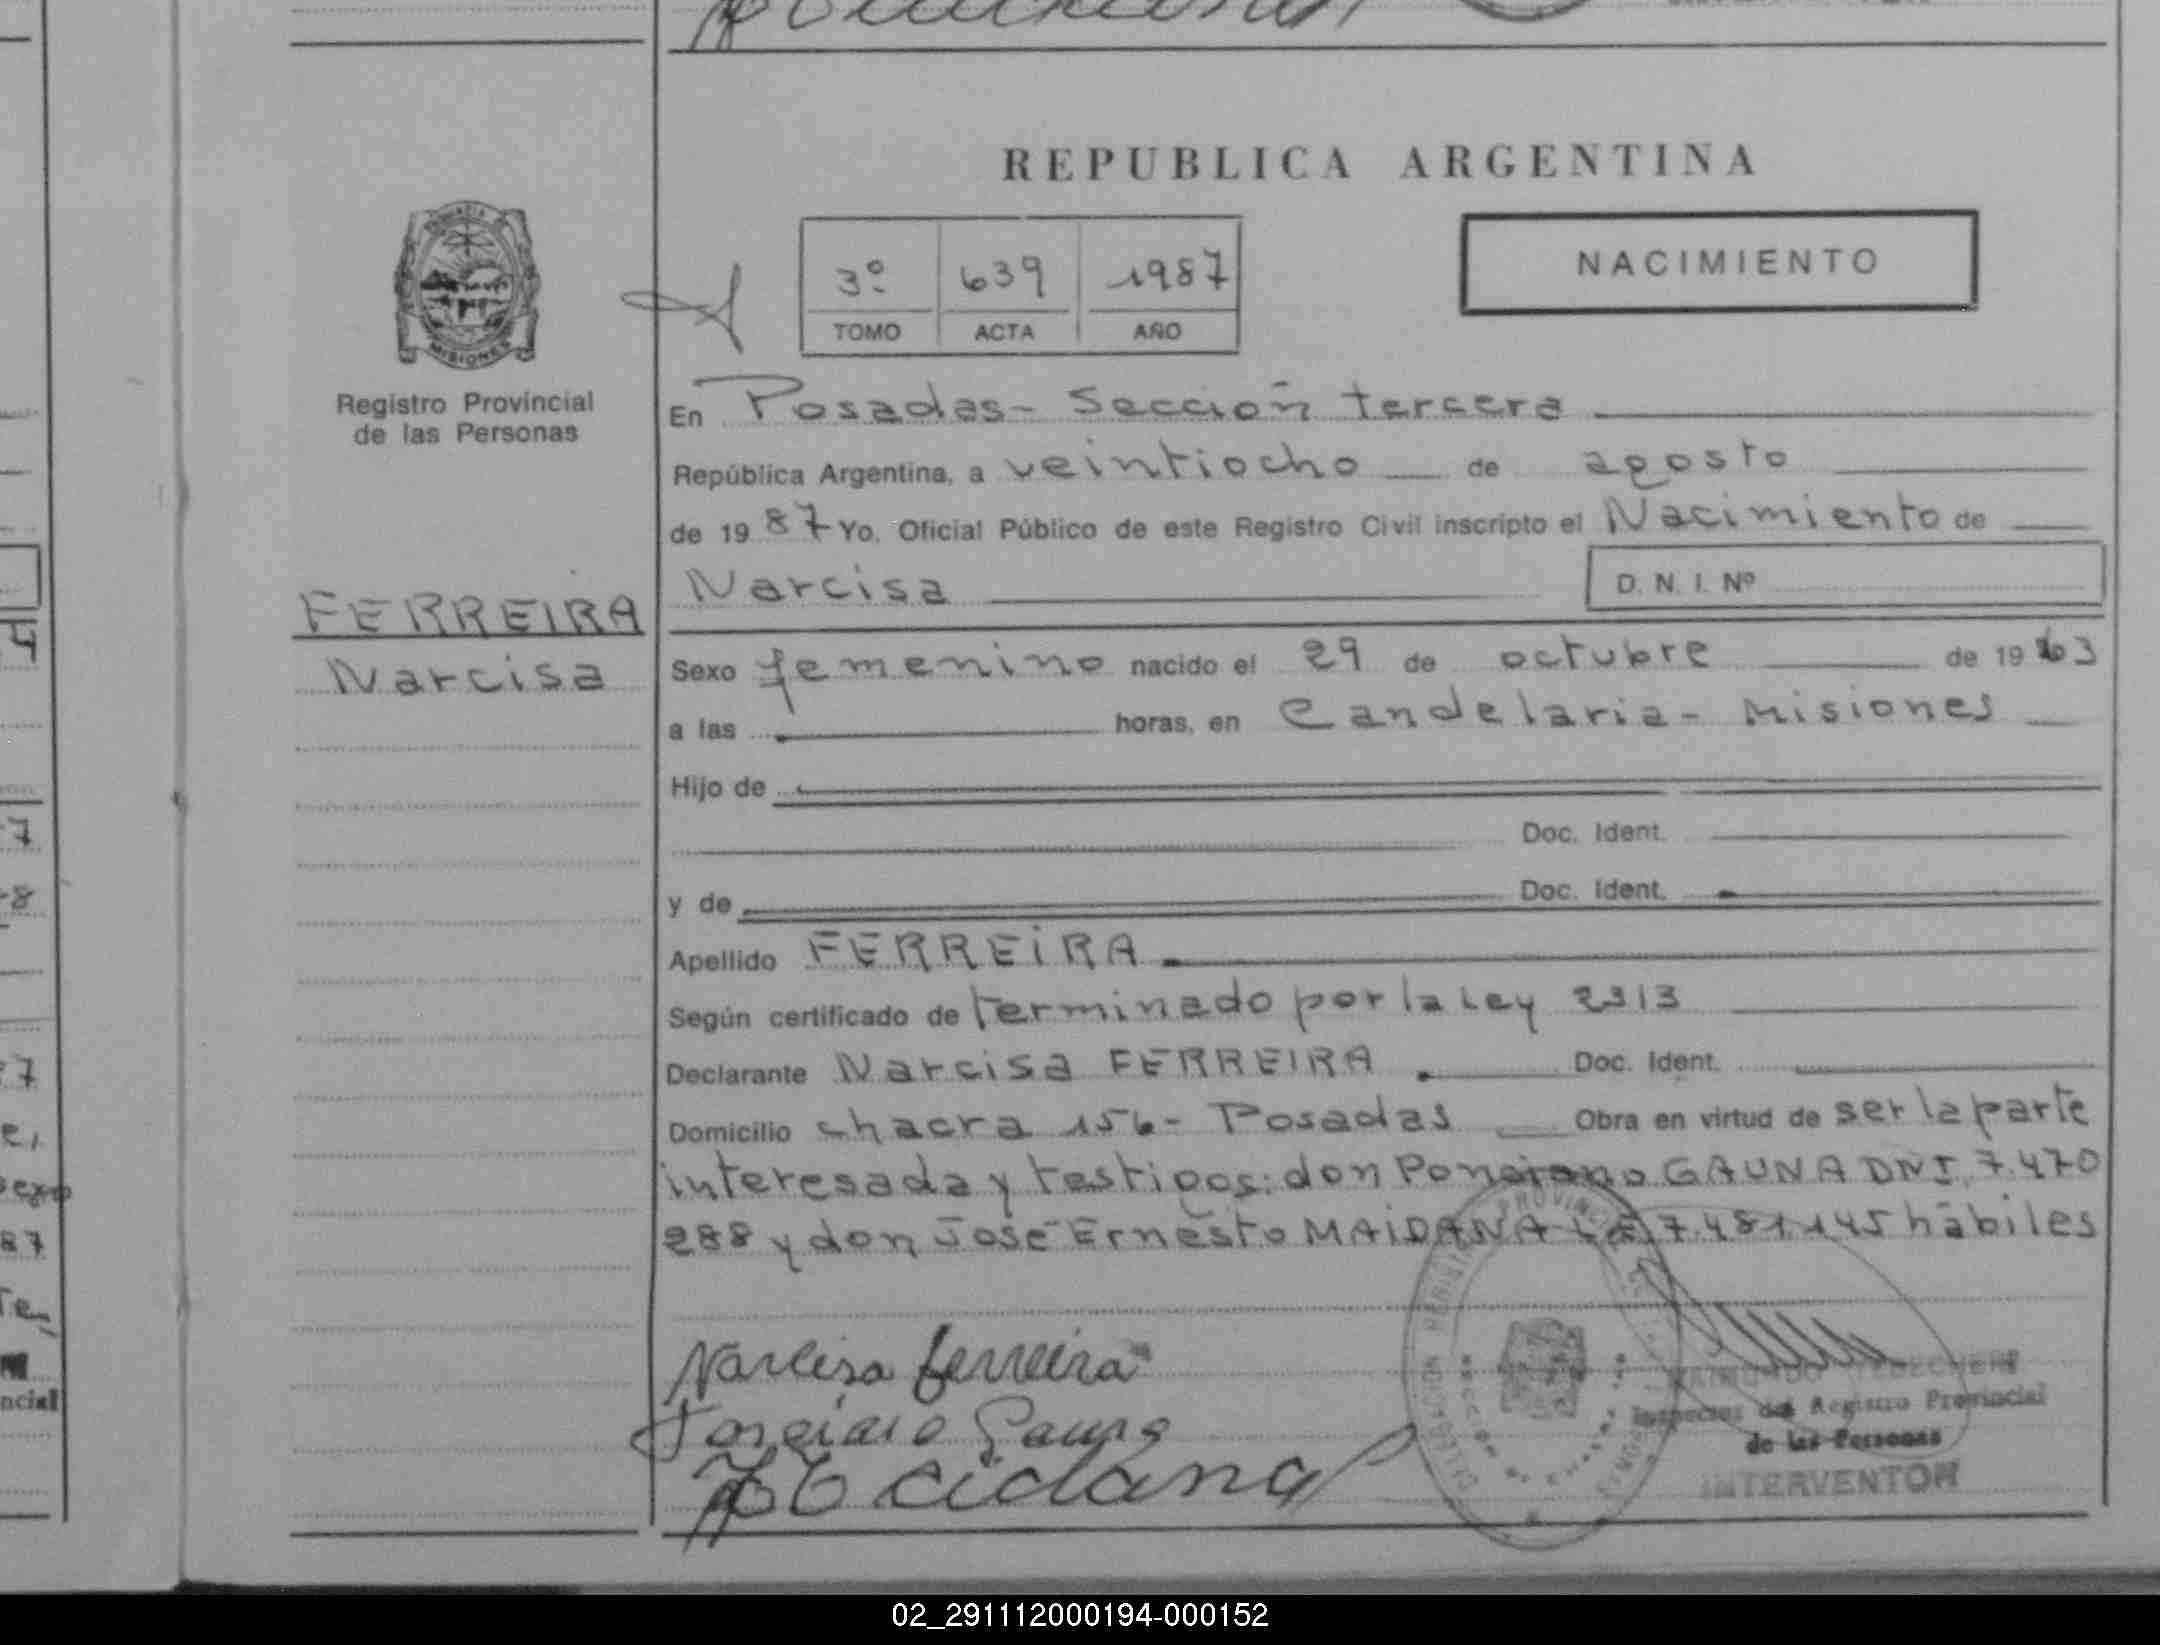 REPUBLICA ARGENTINA
3º 639 1987
TOMO ACTA AÑO
NACIMIENTO
MISIONES
Registro Provincial
de las Personas
FERREIRA
Narcisa
En Posadas - Sección tercera
República Argentina, a veintiocho de agosto
de 1987 Yo, Oficial Público de este Registro Civil inscripto el Nacimiento de
Narcisa D. N. I. Nº
Sexo femenino nacido el 29 de octubre de 1963
a las horas, en Candelaria - Misiones
Hijo de
Doc. Ident.
y de Doc. Ident.
Apellido FERREIRA
Según certificado de terminado por la Ley 2313
Declarante Narcisa FERREIRA. Doc. Ident.
Domicilio chacra 156 - Posadas Obra en virtud de ser la parte
interesada y testigos: don Ponciano GAUNA DNI. 7.470
288 y don José Ernesto MAIDANA LE 7.481.145 hábiles
Narcisa Ferreira
Ponciano Gauna
Inspector del Registro Provincial
de las Personas
INTERVENTOR
7
8
7
e,
87
ncial
02_291112000194-000152